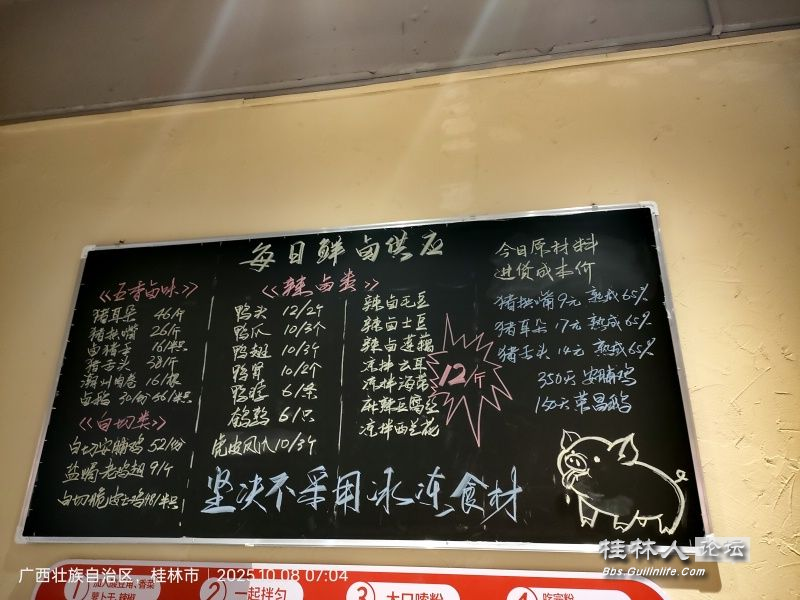 每日鲜卤供应
<<五香卤味>>
猪耳朵 46/斤
猪拱嘴 26/斤
卤猪手 16/半只
猪舌头 38/斤
潮汕肉卷 16/根
卤鹅 30/份 66/半只
<<白切类>>
白切安脯鸡 52/份
盐焗老鸡翅 9/个
白切脆皮土鸡 48/半只
<<辣卤类>>
鸭头 12/2个
鸭爪 10/3个
鸭翅 10/3个
鸭胃 10/2个
鸭脖 6/条
鹌鹑 6/只
虎皮凤爪 10/3个
辣卤毛豆
辣卤土豆
辣卤莲藕
凉拌云耳
凉拌海带
麻辣豆腐
凉拌西兰花
12/斤
今日原材料
进货成本价
猪拱嘴 9元 熟成65%
猪耳朵 17元 熟成65%
猪舌头 14元 熟成65%
350天 安脯鸡
150天 荣昌鹅
坚决不采用冰冻食材
桂林人论坛
Bbs.Guilinlife.Com
广西壮族自治区,桂林市 | 2025.10.08 07:04
1 加入酸豆角、香菜
萝卜干、辣椒
2 一起拌匀
3 大口嗦粉
4 吃完粉